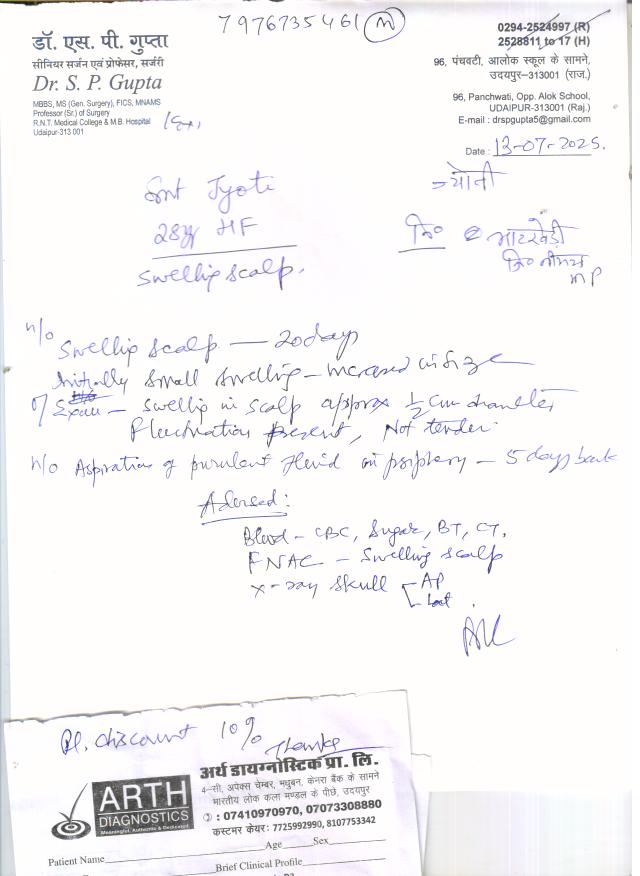 7976735461 M
डॉ. एस. पी. गुप्ता
सीनियर सर्जन एवं प्रोफेसर, सर्जरी
Dr. S. P. Gupta
MBBS, MS (Gen. Surgery), FICS, MNAMS
Professor (Sr.) of Surgery
R.N.T. Medical College & M.B. Hospital
Udaipur-313 001
0294-2524997 (R)
2528811 to 17 (H)
96, पंचवटी, आलोक स्कूल के सामने,
उदयपुर-313001 (राज.)
96, Panchwati, Opp. Alok School,
UDAIPUR-313001 (Raj.)
E-mail : drspgupta5@gmail.com
Date : 13-07-2025.
Smt Jyoti
28y HF
Swelling scalp.
ज्योती
नि० भाटखेड़ी
जि० नीमच
MP
H/O Swelling scalp — 20 days
Initially small swelling – increased in size
O/Exam – Swelling in scalp approx 1/2 cm diameter
Fluctuation present, Not tender.
H/O Aspiration of purulent fluid in periphery – 5 days back
Advised:
Blood – CBC, Sugar, BT, CT,
FNAC – Swelling scalp
X-ray skull AP
Lat.
Pl. discount 10%
Thanks
ARTH
DIAGNOSTICS
Meaningful, Authentic & Dedicated
अर्थ डायग्नोस्टिक प्रा. लि.
4-सी, अपेक्स चेम्बर, मधुबन, केनरा बैंक के सामने
भारतीय लोक कला मण्डल के पीछे, उदयपुर
: 07410970970, 07073308880
कस्टमर केयर: 7725992990, 8107753342
Patient Name Age Sex
Brief Clinical Profile